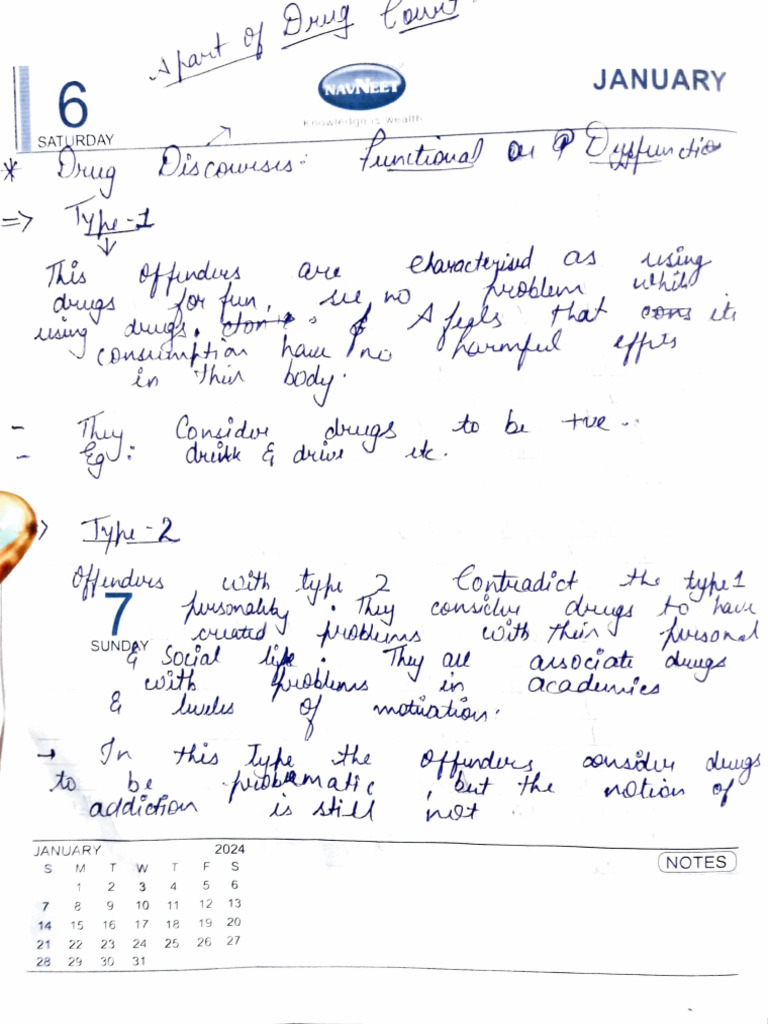 A part of Drug Court
6
SATURDAY
NAVNEET
Knowledge is wealth
JANUARY
* Drug Discourses: Functional or Dysfunctio
=> Type-1
This offenders are characterised as using
drugs for fun, see no problem while
using drugs. & A feels that cons its
consumption have no harmful effects
in their body.
- They Consider drugs to be +ve.
- Eg: drink & drive etc.
> Type-2
Offenders with type 2 Contradict the type 1
7
SUNDAY
personality. They consider drugs to have
created problems with their personal
& Social life. They are associate drugs
with problems in academics
& levels of motivation.
→ In this Type the offenders consider drugs
to be problematic, but the notion of
addiction is still not
JANUARY 2024
S M T W T F S
1 2 3 4 5 6
7 8 9 10 11 12 13
14 15 16 17 18 19 20
21 22 23 24 25 26 27
28 29 30 31
NOTES